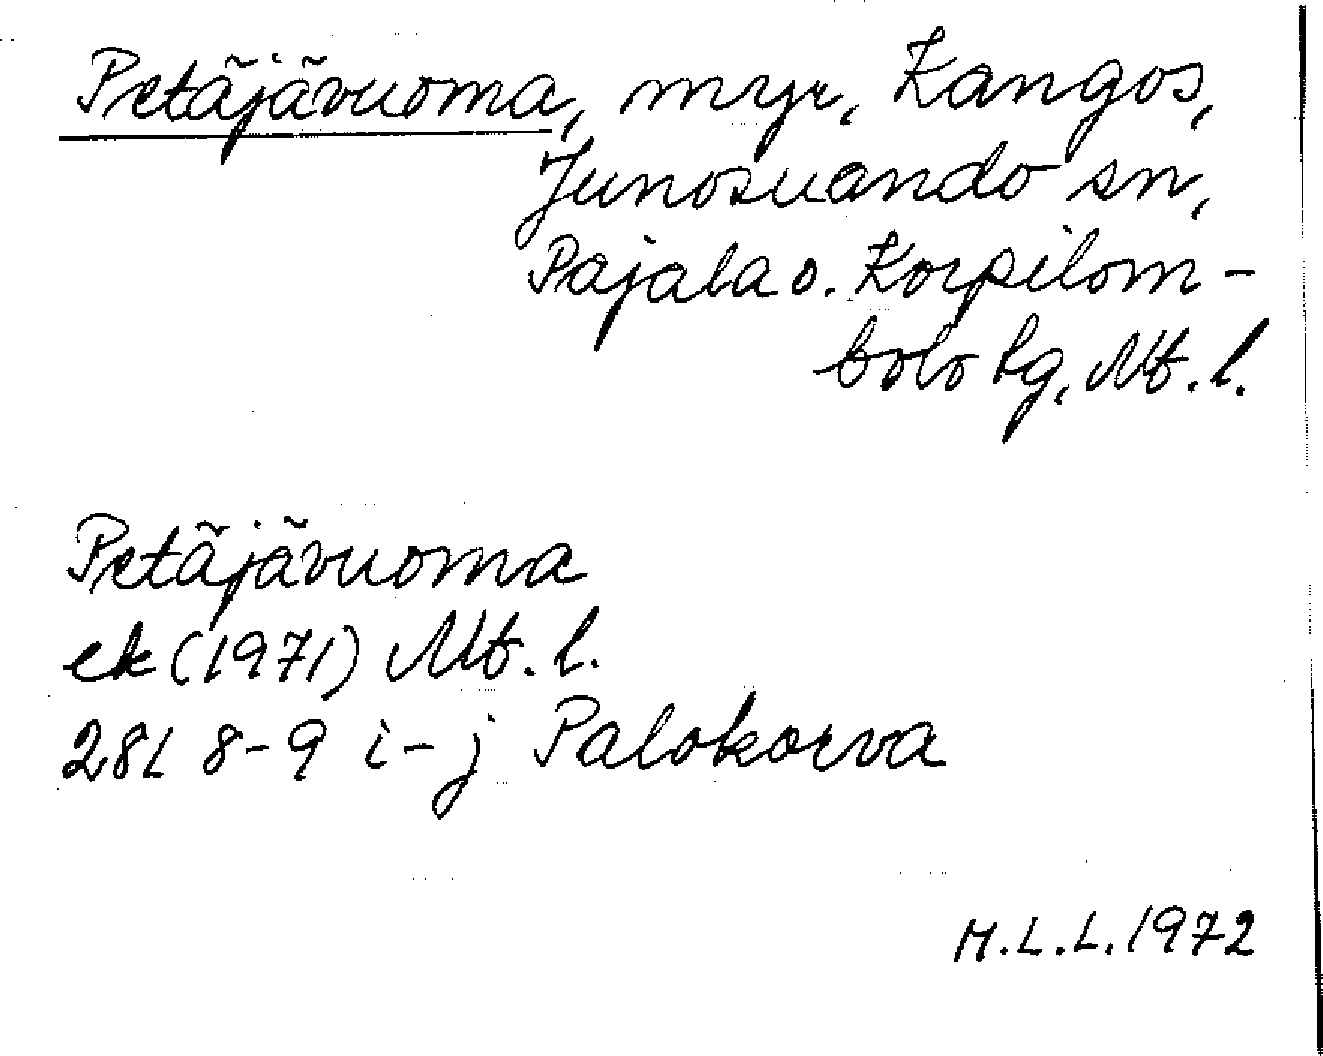 Petäjävuoma, myr, Kangos,
Junosuando sn,
Pajala o. Korpilom-
bolo tg, Nb. l.
Petäjävuoma
ek (1971) Nb. l.
28L 8-9 i-j Palokorva
M.L.L. 1972